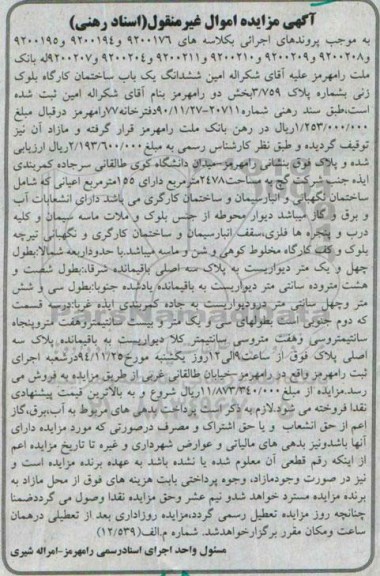 آگهی مزایده اموال غیرمنقول(اسناد رهنی)
به موجب پروندهای اجرائی بکلاسه های ۹۲۰۰۱۷۶ و۹۲۰۰۱۹۴ و۹۲۰۰۱۹۵
و۹۲۰۰۲۰۸ و ۹۲۰۰۲۰۹ و۹۲۰۰۲۱۰ و۹۲۰۰۲۱۱ و۹۲۰۰۲۰۴ و۹۲۰۰۲۰۷له بانک
ملت رامهرمز علیه آقای شکراله امین ششدانگ یک باب ساختمان کارگاه بلوک
زنی بشماره پلاک ۳/۷۵۹بخش دو رامهرمز بنام آقای شکراله امین ثبت شده
است،طبق سند رهنی شماره۲۰۷۱۱-۹۰/۱۱/۲۷دفترخانه۷۷رامهرمز درقبال مبلغ
۱/۲۵۳/۰۰۰/۰۰۰ریال در رهن بانک ملت رامهرمز قرار گرفته و مازاد آن نیز
توقیف گردیده و طبق نظر کارشناس رسمی به مبلغ۲/۱۹۳/۶۰۰/۰۰۰ریال ارزیابی
شده و پلاک فوق بنشانی رامهرمز-میدان دانشگاه کوی طالقانی سرجاده کمربندی
ایذه جنب شرکت گچ به مساحت۲۴۷۸مترمربع دارای ۱۵۵مترمربع اعیانی که شامل
ساختمان نگهبانی و انبارسیمان و ساختمان کارگری می باشد دارای انشعابات آب
و برق و گاز میباشد دیوار محوطه از جنس بلوک و ملات ماسه سیمان و کلیه
درب و پنجره ها فلزی،سقف انبارسیمان و ساختمان کارگری و نگهبانی تیرچه
بلوک و کف کارگاه مخلوط کوهی و شن و ماسه میباشد.با حدوداربعه شمالا:بطول
چهل و یک متر دیواریست به پلاک سه اصلی باقیمانده شرقا:بطول شصت و
هشت مترو‌ده سانتی متر دیواریست به باقیمانده یادشده جنوبا:بطول سی و شش
متر وچهل سانتی متر درودیواریست به جاده کمربندی ایذه غربا:درسه قسمت
که دوم جنوبی است بطولهای سی و یک متر و بیست سانتیمتروهفت متروپنجاه
سانتیمتروسی وهفت متروسی سانتیمتر کلا دیواریست به باقیمانده پلاک سه
اصلی پلاک فوق از ساعت۹الی۱۲روز یکشنبه مورخ۹۴/۱۱/۲۵درشعبه اجرای
ثبت رامهرمز واقع در رامهرمز-خیابان طالقانی غربی از طریق مزایده به فروش می
رسد.مزایده از مبلغ ۱/۸۷۳/۳۴۰/۰۰۰ریال شروع و به بالاترین قیمت پیشنهادی
نقدا فروخته می شود.لازم به ذکر است پرداخت بدهی های مربوط به آب،برق،گاز
اعم از حق انشعاب و یا حق اشتراک و مصرف درصورتی که مورد مزایده دارای
آنها باشدونیز بدهی های مالیاتی و عوارض شهرداری و غیره تا تاریخ مزایده اعم
از اینکه رقم قطعی آن معلوم شده یا نشده باشد به عهده برنده مزایده است و
نیز در صورت وجودمازاد، وجوه پرداختی بابت هزینه های فوق از محل مازاد به
برنده مزایده مسترد خواهد شدو نیم عشر وحق مزایده نقدا وصول می گرددضمنا
چنانچه روز مزایده تعطیل رسمی گردد،مزایده روزاداری بعد از تعطیلی درهمان
ساعت ومکان مقرر برگزارخواهدشد. شماره م.الف(۱۲/۵۳۹)
مسئول واحد اجرای اسنادرسمی رامهرمز-امراله شیری
ParsNamadData